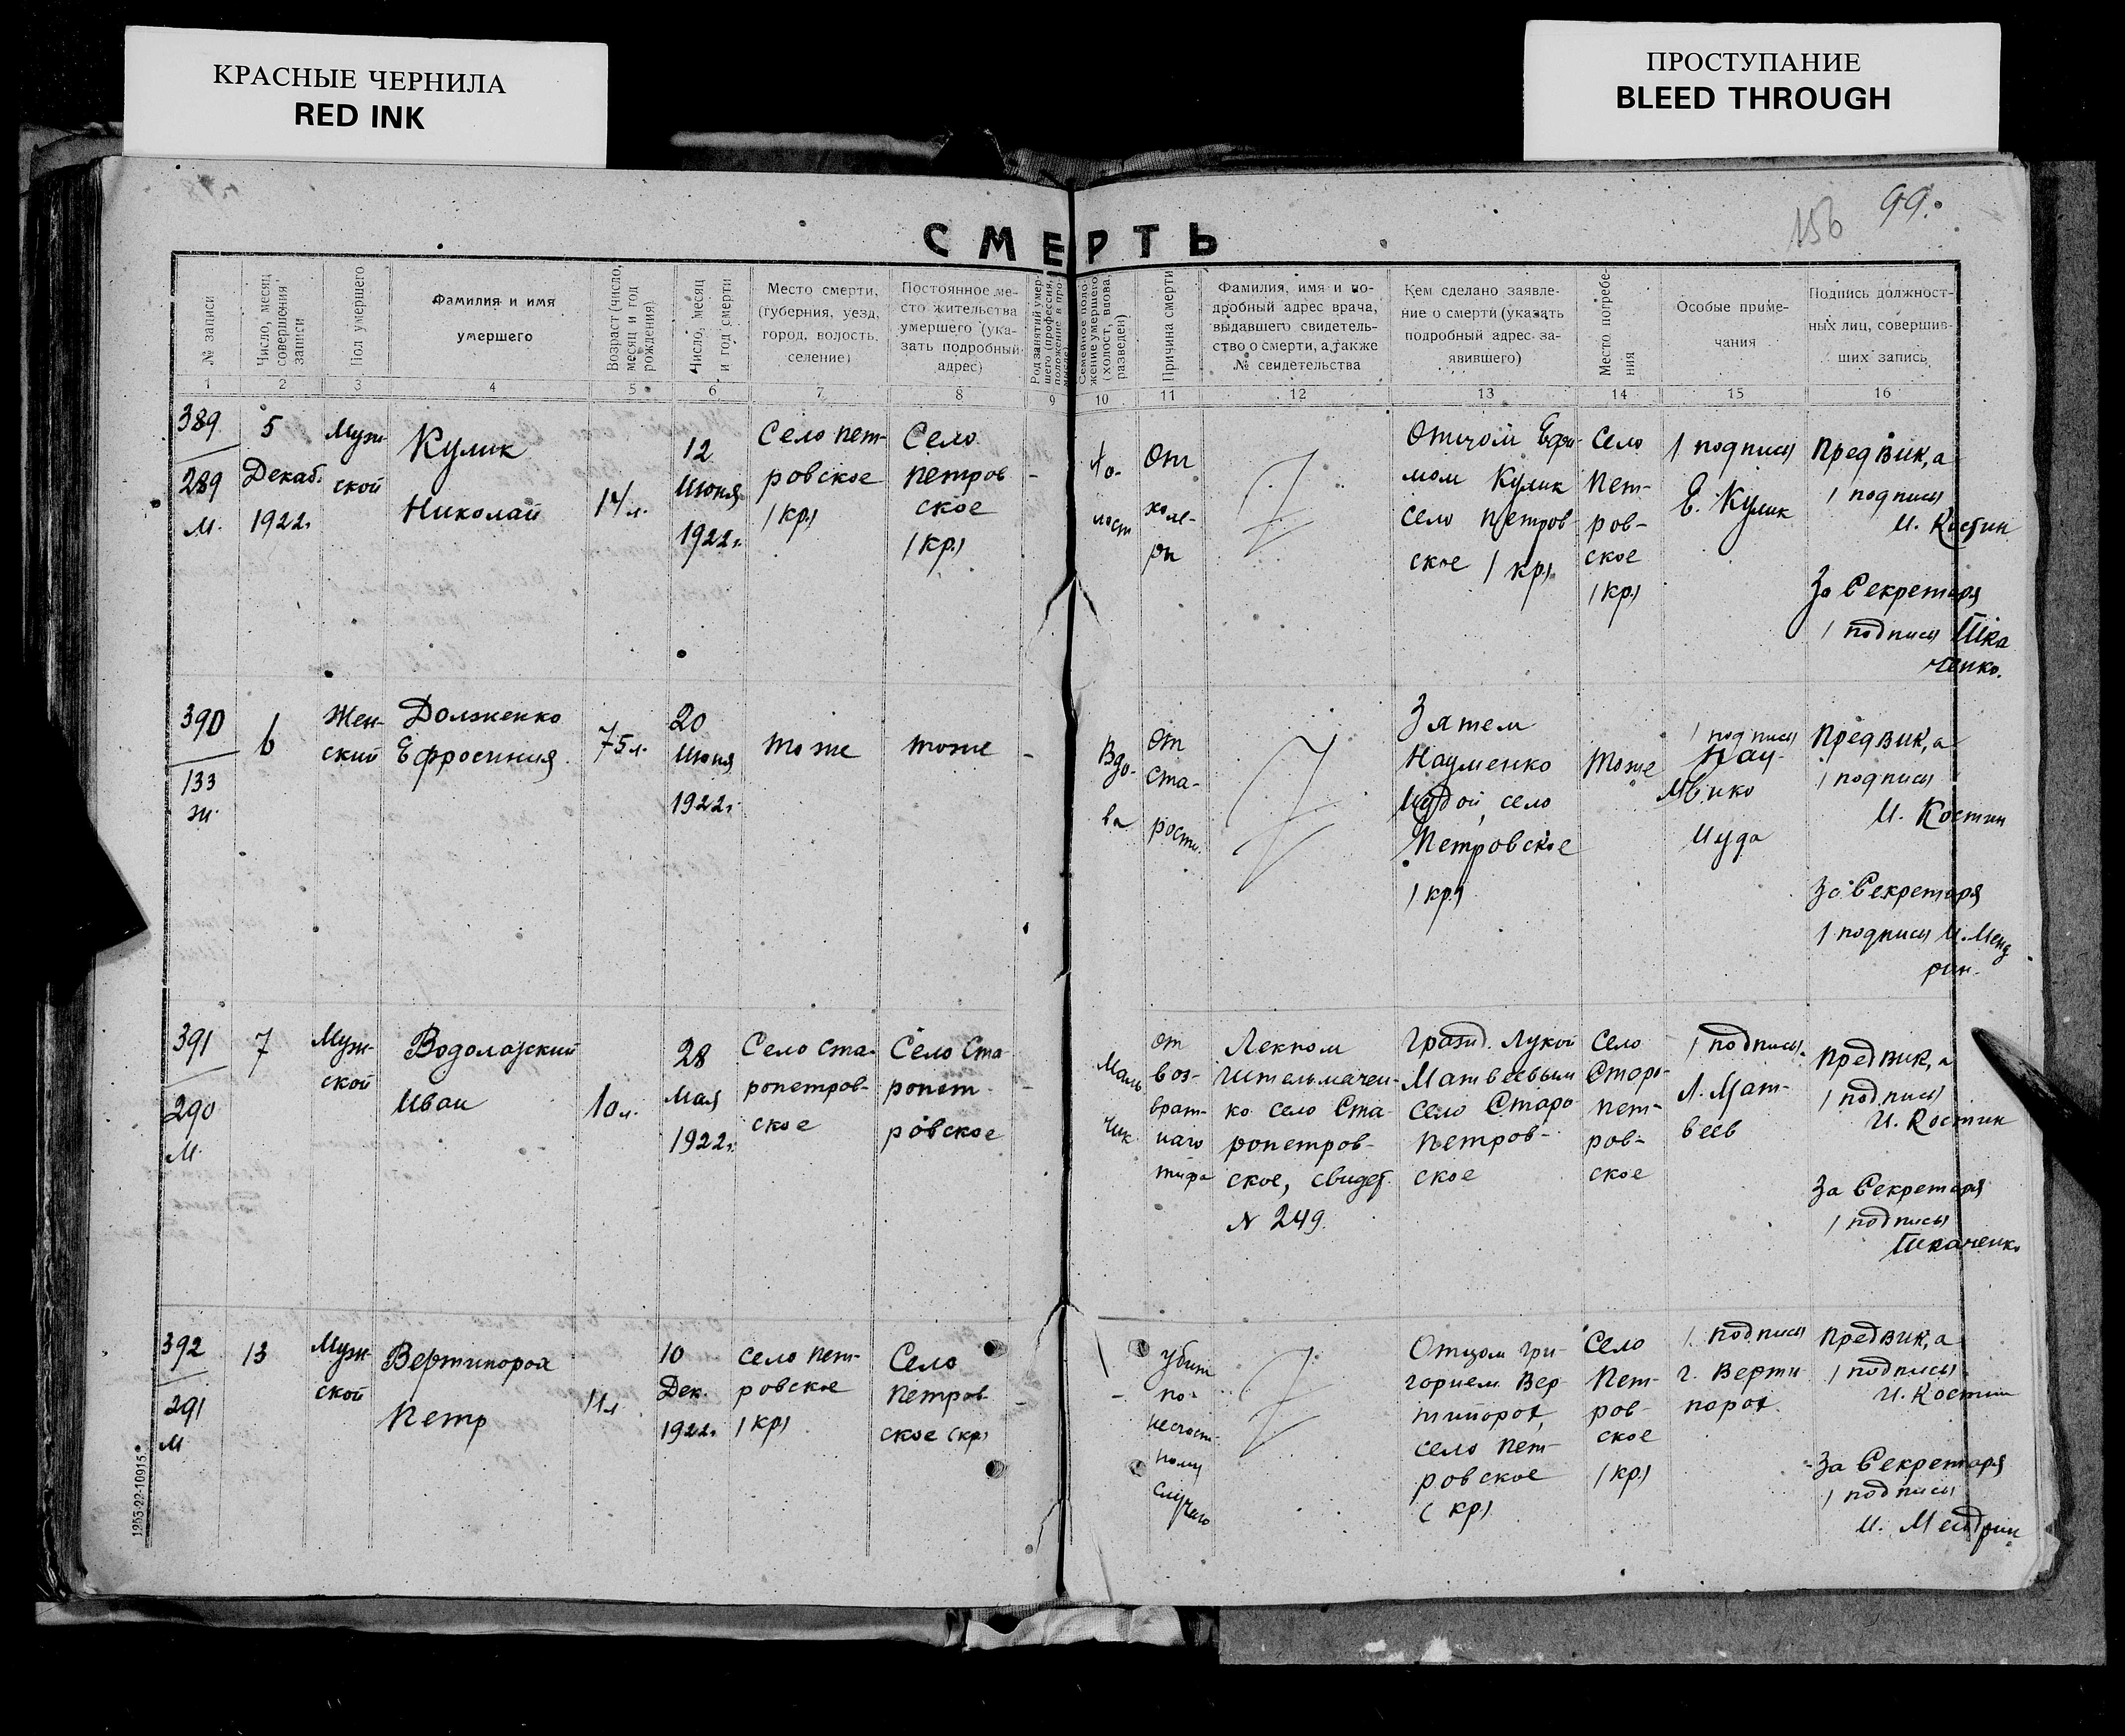 КРАСНЫЕ ЧЕРНИЛА
RED INK
ПРОСТУПАНИЕ
BLEED THROUGH
156
99.
СМЕРТЬ
№ записи
Число, месяц
совершения
записи
Пол умершего
Фамилия и имя
умершего
Возраст (число,
месяц и год
рождения)
Число, месяц
и год смерти
Место смерти,
(губерния, уезд,
город, волость,
селение)
Постоянное ме-
сто жительства
умершего (ука-
зать подробный
адрес)
Род занятий умер-
шего (профессия,
положение в про-
Семейное поло-
жение умершего
(холост, вдова,
разведен)
Причина смерти
Фамилия, имя и по-
дробный адрес врача,
выдавшего свидетель-
ство о смерти, а также
№ свидетельства
Кем сделано заявле-
ние о смерти (указать
подробный адрес за-
явившего)
Место погребе-
ния
Особые приме-
чания
Подпись должност-
ных лиц, совершив-
ших запись
1 2 3 4 5 6 7 8 9 10 11 12 13 14 15 16
389
289
м.
5
Декаб.
1922г.
Муж-
ской
Кулик
Николай
17л.
12
Июня
1922г.
Село Пет-
ровское
/кр/
Село
Петров
ское
/кр/
-
Хо-
лост
От
холе-
ры
Отчом Ефи-
мом Кулик
село Петров
ское /кр/
Село
Пет-
ров-
ское
/кр/
/подпись
Е. Кулик
Предвик,а
/подпись
И. Костин
За Секретаря
/подпись Тка
ченко.
390
133
ж.
6
Жен-
ский
Долженко
Ефросиния
75л.
20
Июня
1922г.
тоже
тоже
-
Вдо-
ва
От
ста-
рости.
Зятем
Науменко
Иудой, село
Петровское
/кр/
тоже
/подпись
Нау-
менко
Иуда
Предвик,а
/подпись
И. Костин
За Секретаря
/подпись И. Менд
рин.
391
290
м.
7
Муж-
ской
Водолазский
Иван
10л.
28
Мая
1922г.
Село Ста-
ропетров-
ское
Село Ста
ропет-
ровское
-
Маль
чик
От
воз-
врат-
наго
тифа
Лекпом
ко село Ста-
ропетров-
ское, свидет.
№ 249.
Гражд. Лукой
Матвеевым
село Старо
петров-
ское
Село
Старо-
пет-
ров-
ское
/подпись
Л. Мат-
веев
Предвик,а
/подпись
И. Костин
За Секретаря
/подпись
Ткаченко
392
291
м
13
Муж-
ской
Вертипорох
Петр
11л
10
Дек.
1922г.
село Пет-
ровское
/кр/
Село
Петров
ское (кр)
-
-
убит
по-
несчаст-
ному
случаю
Отцом Гри-
горием Вер
типорох,
село Пет-
ровское
(кр)
Село
Пет-
ров-
ское
/кр/
/подпись
Г. Верти
порох.
Предвик,а
/подпись
И. Костин
За Секретаря
/подпись
И. Мендрин
1253-22-10915